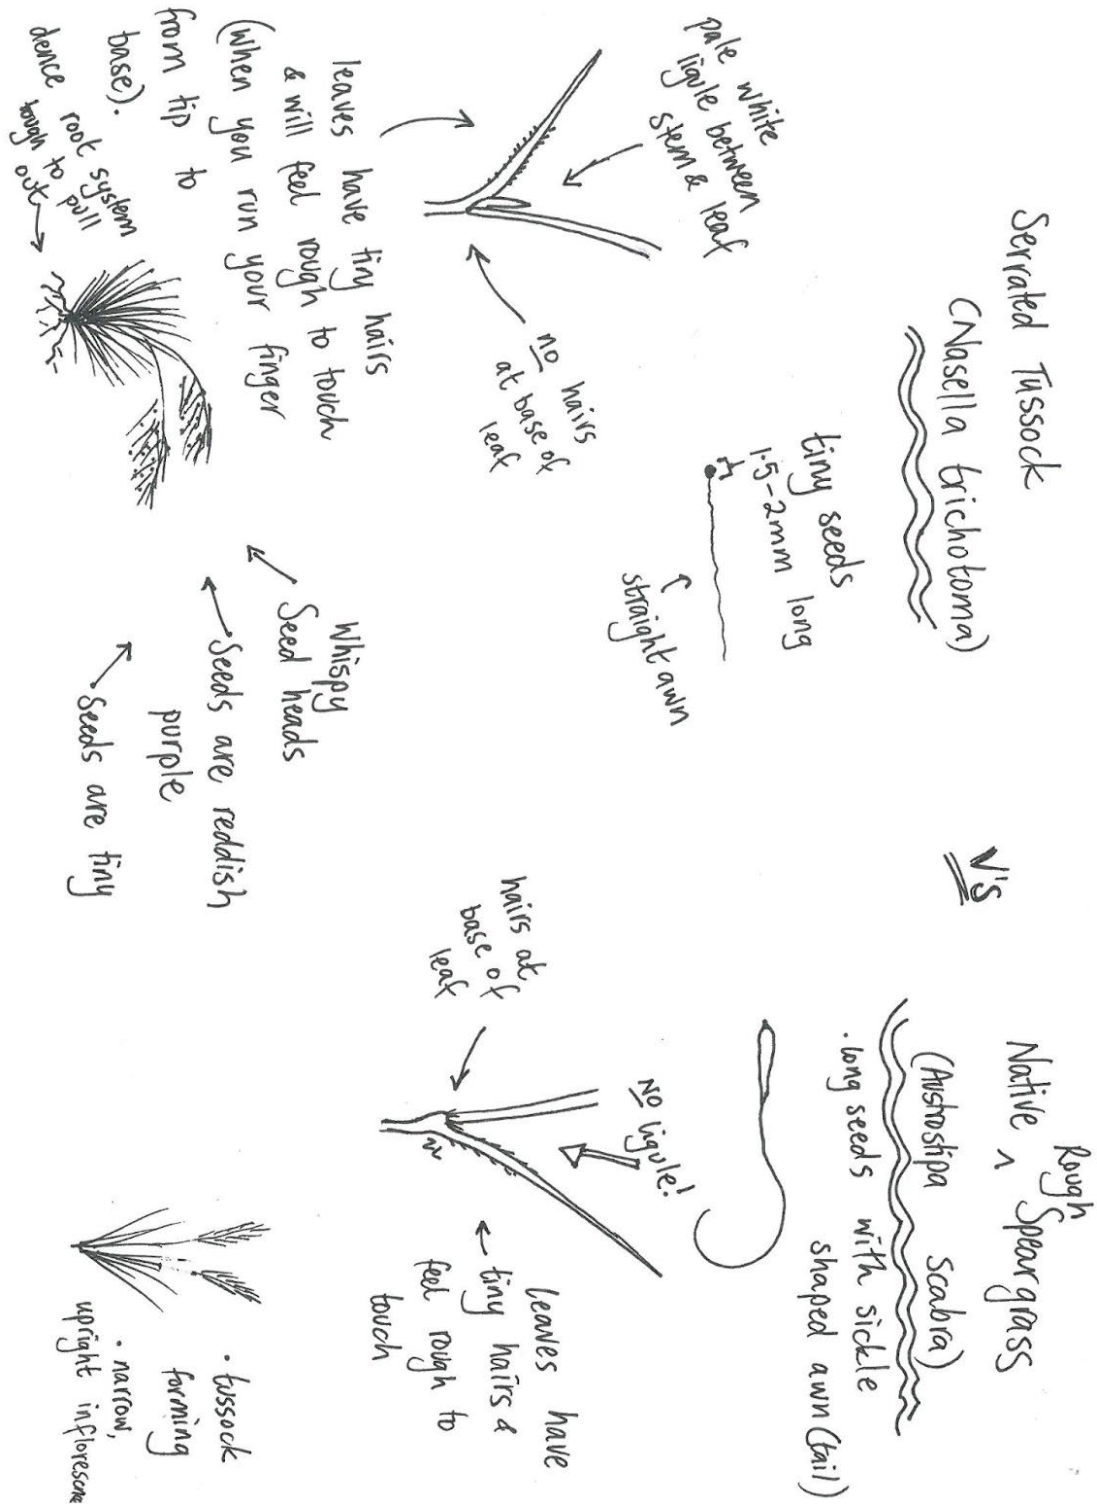 Serrated Tussock
(Nasella trichotoma)
tiny seeds
1.5-2mm long
straight awn
pale white
ligule between
stem & leaf
no hairs
at base of
leaf
leaves have tiny hairs
& will feel rough to touch
(when you run your finger
from tip to
base).
dence root system
tough to pull
out
Whispy
Seed heads
Seeds are reddish
purple
Seeds are tiny
V's
Native ^ Rough Speargrass
(Austrostipa Scabra)
• long seeds with sickle
shaped awn (tail)
NO ligule!
hairs at
base of
leaf
leaves have
tiny hairs &
feel rough to
touch
• tussock
forming
• narrow,
upright inflorescne